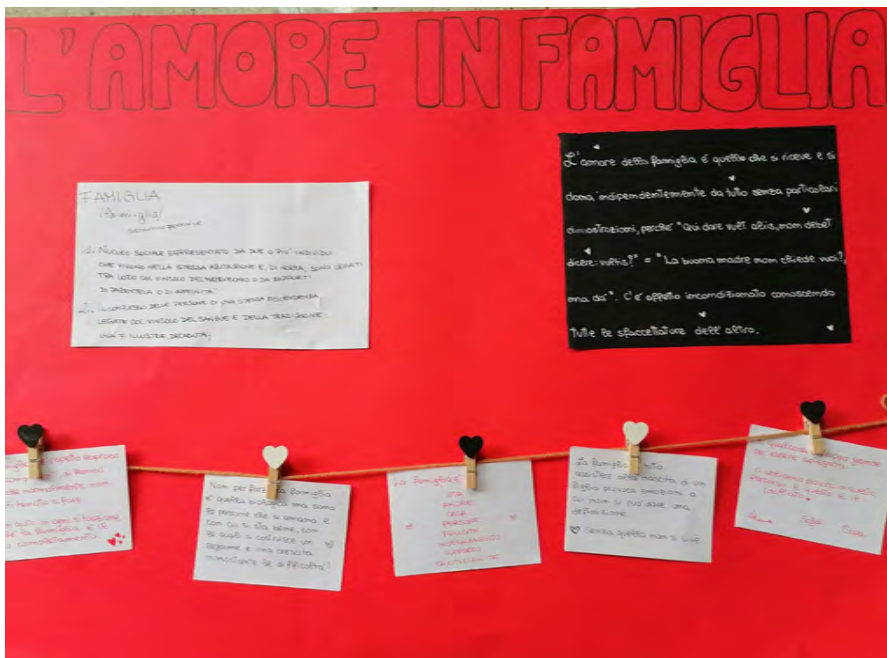 L'AMORE IN FAMIGLIA
FAMIGLIA
/fa·mi·glia/
sostantivo femminile
1. NUCLEO SOCIALE RAPPRESENTATO DA DUE O PIU' INDIVIDUI
CHE VIVONO NELLA STESSA ABITAZIONE E, DI NORMA, SONO LEGATI
TRA LORO COL VINCOLO DEL MATRIMONIO O DA RAPPORTI
DI PARENTELA O DI AFFINITA'.
2. IL COMPLESSO DELLE PERSONE DI UNA STESSA DISCENDENZA,
LEGATE COL VINCOLO DEL SANGUE E DELLA TRADIZIONE:
UNA F. ILLUSTRE, DECADUTA;
L'amore della famiglia é quello che si riceve e si
dona indipendentemente da tutto senza particolari
dimostrazioni, perchè "Qui dare vult aliis, non debet
dicere: vultis?" = "La buona madre non chiede vuoi?,
ma dà". C'é affetto incondizionato conoscendo
tutte le sfaccettature dell'altro.
normalmente non
a fare
la famiglia é il
completamento
Non per forza la famiglia
é quella biologica ma sono
le persone che si amano e
con cui si sta bene, con
le quali si costruisce un
legame e una crescita
nonostante le difficoltà!
La famiglia é
VITA
AMORE
CASA
PERSONE
FELICITÀ
SUPPORTO
QUOTIDIANITÀ
La famiglia é tutto,
assistere alla nascita di un
figlio provoca emozioni a
cui non si può dare una
definizione.
Senza quella non si vive
troppo grande
per essere spiegata
Sofia Sara